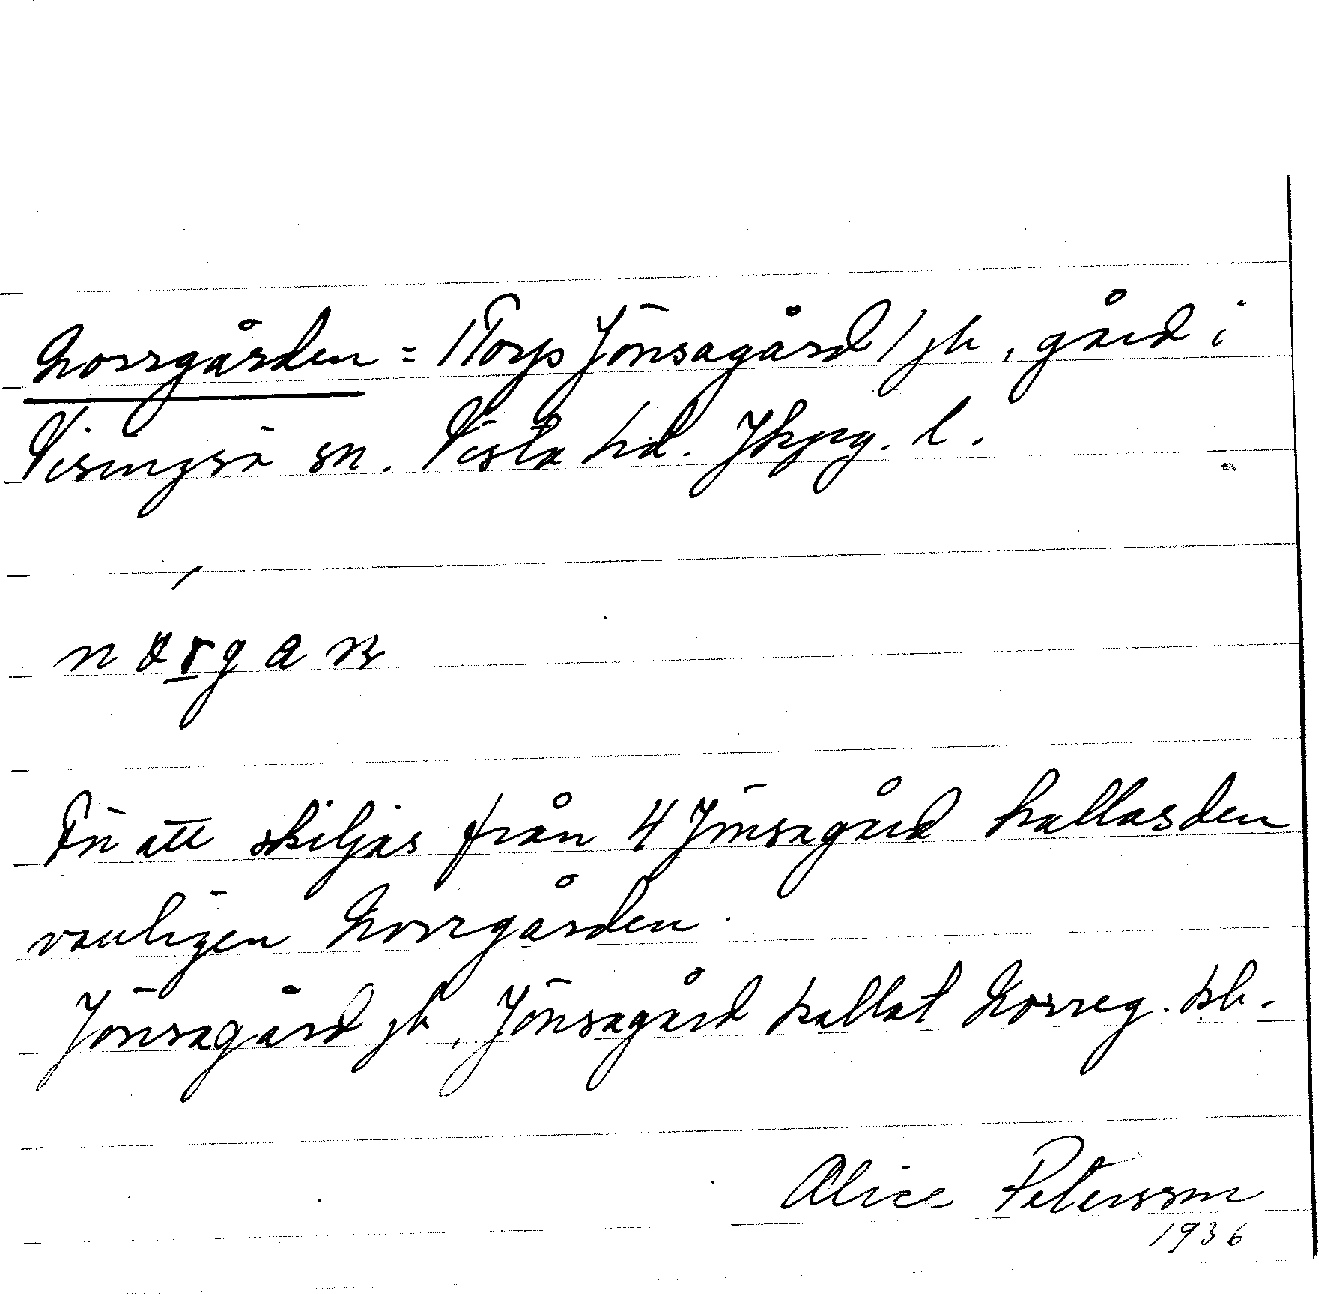 Norrgården = 1 Torps Jönsagård 1 jb, gård i
Visingsö sn. Vista hd. Jkpg. l.
För att skiljas från 4 Jönsagård kallas den
vanligen Norrgården.
Jönsagård jb, Jönsagård kallat Norreg. kb.
Alice Petersson
1936